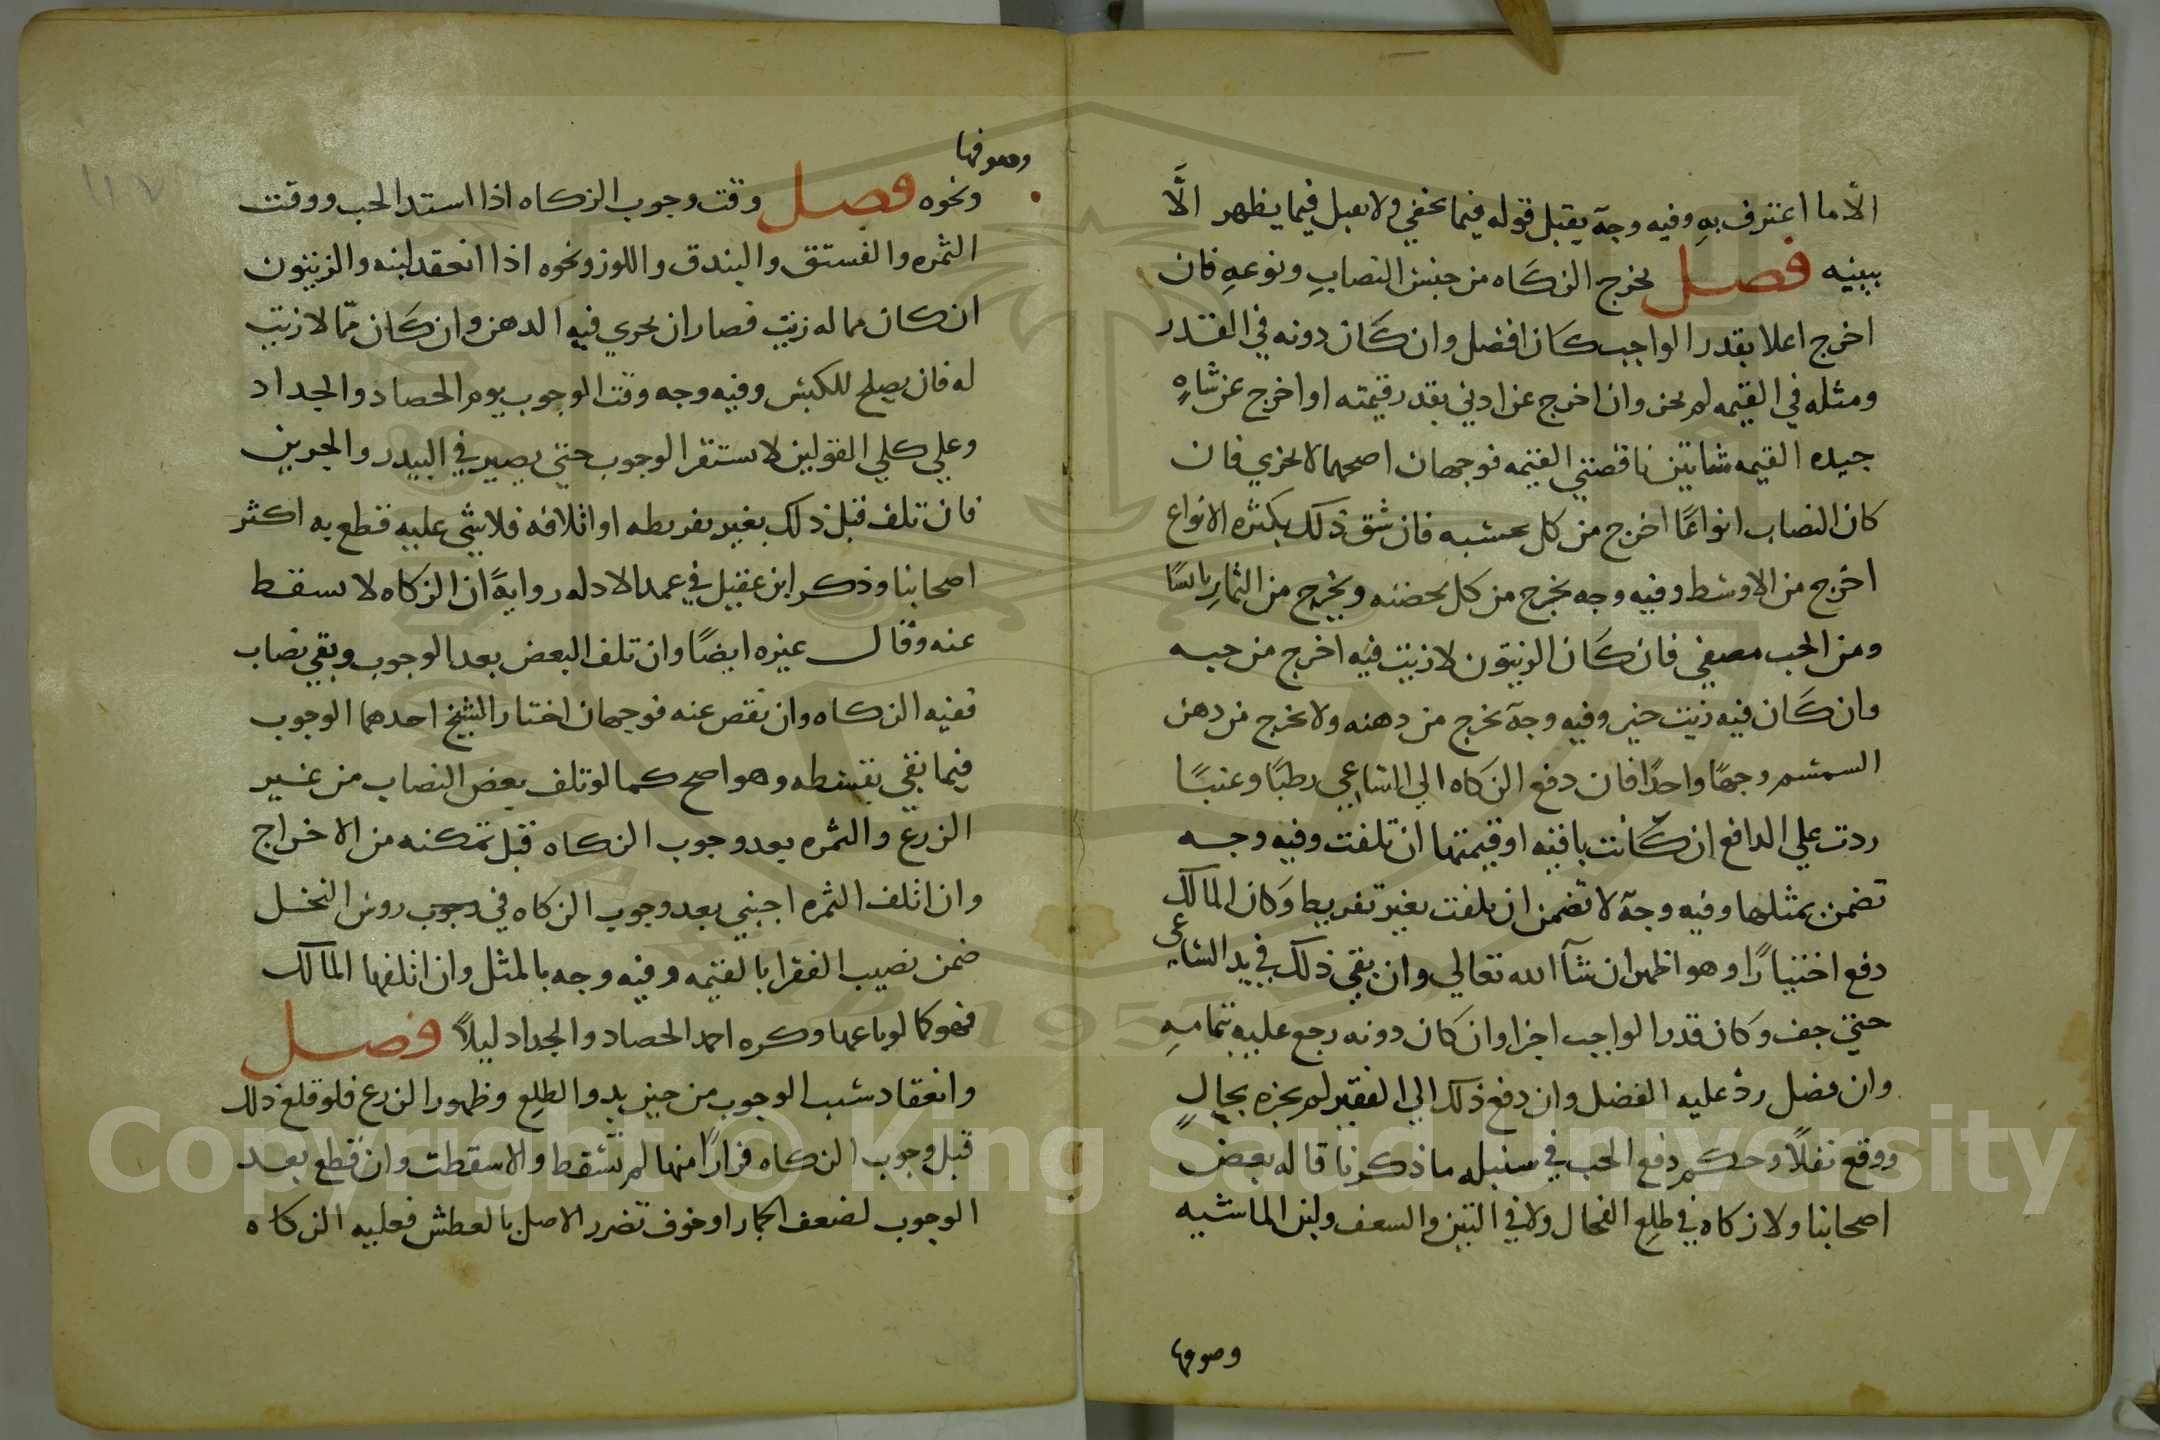 الَّا ما اعترف بهِ وفيه وجهٌ يقبل قوله فيما يخفي ولا يقبل فيما يظهر الَّا
ببينه فصل يخرج الزكاه من جنس النصابِ ونوعهِ فان
اخرج اعلا بقدر الواجب كان افضل وان كان دونه في القدر
ومثله في القيمه لم يجز وان اخرج عن ادني بقدر قيمته او اخرج عن شاهٍ
جيده القيمه شاتين ناقصتي القيمه فوجهان اصحهما لا يجزي فان
كان النصاب انواعًا اخرج من كل بحسبه فان شق ذلك بكثره الانواع
اخرج من الاوسط وفيه وجه يخرج من كل بحصته ويخرج من الثمارِ يابسًا
ومن الحب مصفي فان كان الزيتون لا زيت فيه اخرج من حبه
وان كان فيه زيت خير وفيه وجهٌ يخرج من دهنه ولا يخرج من دهن
السمسم وجهًا واحدًا فان دفع الزكاه الي الساعي رطبًا وعنبًا
ردت علي الدافع إن كانت باقيه او قيمتها ان تلفت وفيه وجه
تضمن بمثلها وفيه وجهٌ لا تضمن ان تلفت بغير تفريط وكان المالك
دفع اختيارًا وهو اظهر ان شآ الله تعالي وان بقي ذلك في يد الساعي
حتي جف وكان قدر الواجب اجزا وان كان دونه رجع عليه بتمامهِ
وان فضل ردّ عليه الفضل وان دفع ذلك الي الفقير لم يجزه بحالٍ
ووقع نفلًا وحكم دفع الحب في سنبله ما ذكرنا قاله بعض
اصحابنا ولا زكاه في طلع الفحال ولا في التبن والسعف ولبن الماشيه
وصوفها
وصوفها
ونحوه فصل وقت وجوب الزكاه اذا استد الحب ووقت
الثمره والفستق والبندق واللوز ونحوه اذا انعقد لبنه والزيتون
ان كان مما له زيت فصار ان يجري فيه الدهن وان كان ممّا لا زيت
له فان يصلح للكبس وفيه وجه وقت الوجوب يوم الحصاد والجداد
وعلي كلي القولين لا يستقر الوجوب حتي يصير في البيدر والجرين
فان تلف قبل ذلك بغير تفريطه او اتلافه فلا شي عليه قطع به اكثر
اصحابنا وذكر ابن عقيل في عمد الادله روايةً ان الزكاه لا تسقط
عنه وقال غيره ايضًا وان تلف البعض بعد الوجوب وبقي نصاب
ففيه الزكاه وان نقص عنه فوجهان اختار الشيخ احدهما الوجوب
فيما بقي بقسطه وهو اصح كما لو تلف بعض النصاب من غير
الزرع والثمره بعد وجوب الزكاه قبل تمكنه من الاخراج
وان اتلف الثمره اجنبي بعد وجوب الزكاه في روس النخل
ضمن نصيب الفقرا بالقيمه وفيه وجه بالمثل وان اتلفها المالك
فهو كما لو باعها وكره احمد الحصاد والجداد ليلاً فصل
وانعقاد سبب الوجوب من حين بدو الطلع وظهور الزرع فلو قلع ذلك
قبل وجوب الزكاه فرارًا منها لم تسقط والا سقطت وان قطع بعد
الوجوب لضعف الجمار او خوف تضرر الاصل بالعطش فعليه الزكاه
Copyright © King Saud University